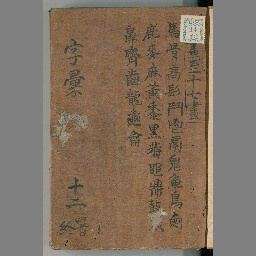 十畫至十七畫
馬骨高髟鬥鬯鬲鬼魚鳥鹵
鹿麥麻黃黍黑黹黽鼎鼓
鼻齊齒龍龜龠
字彙
十二